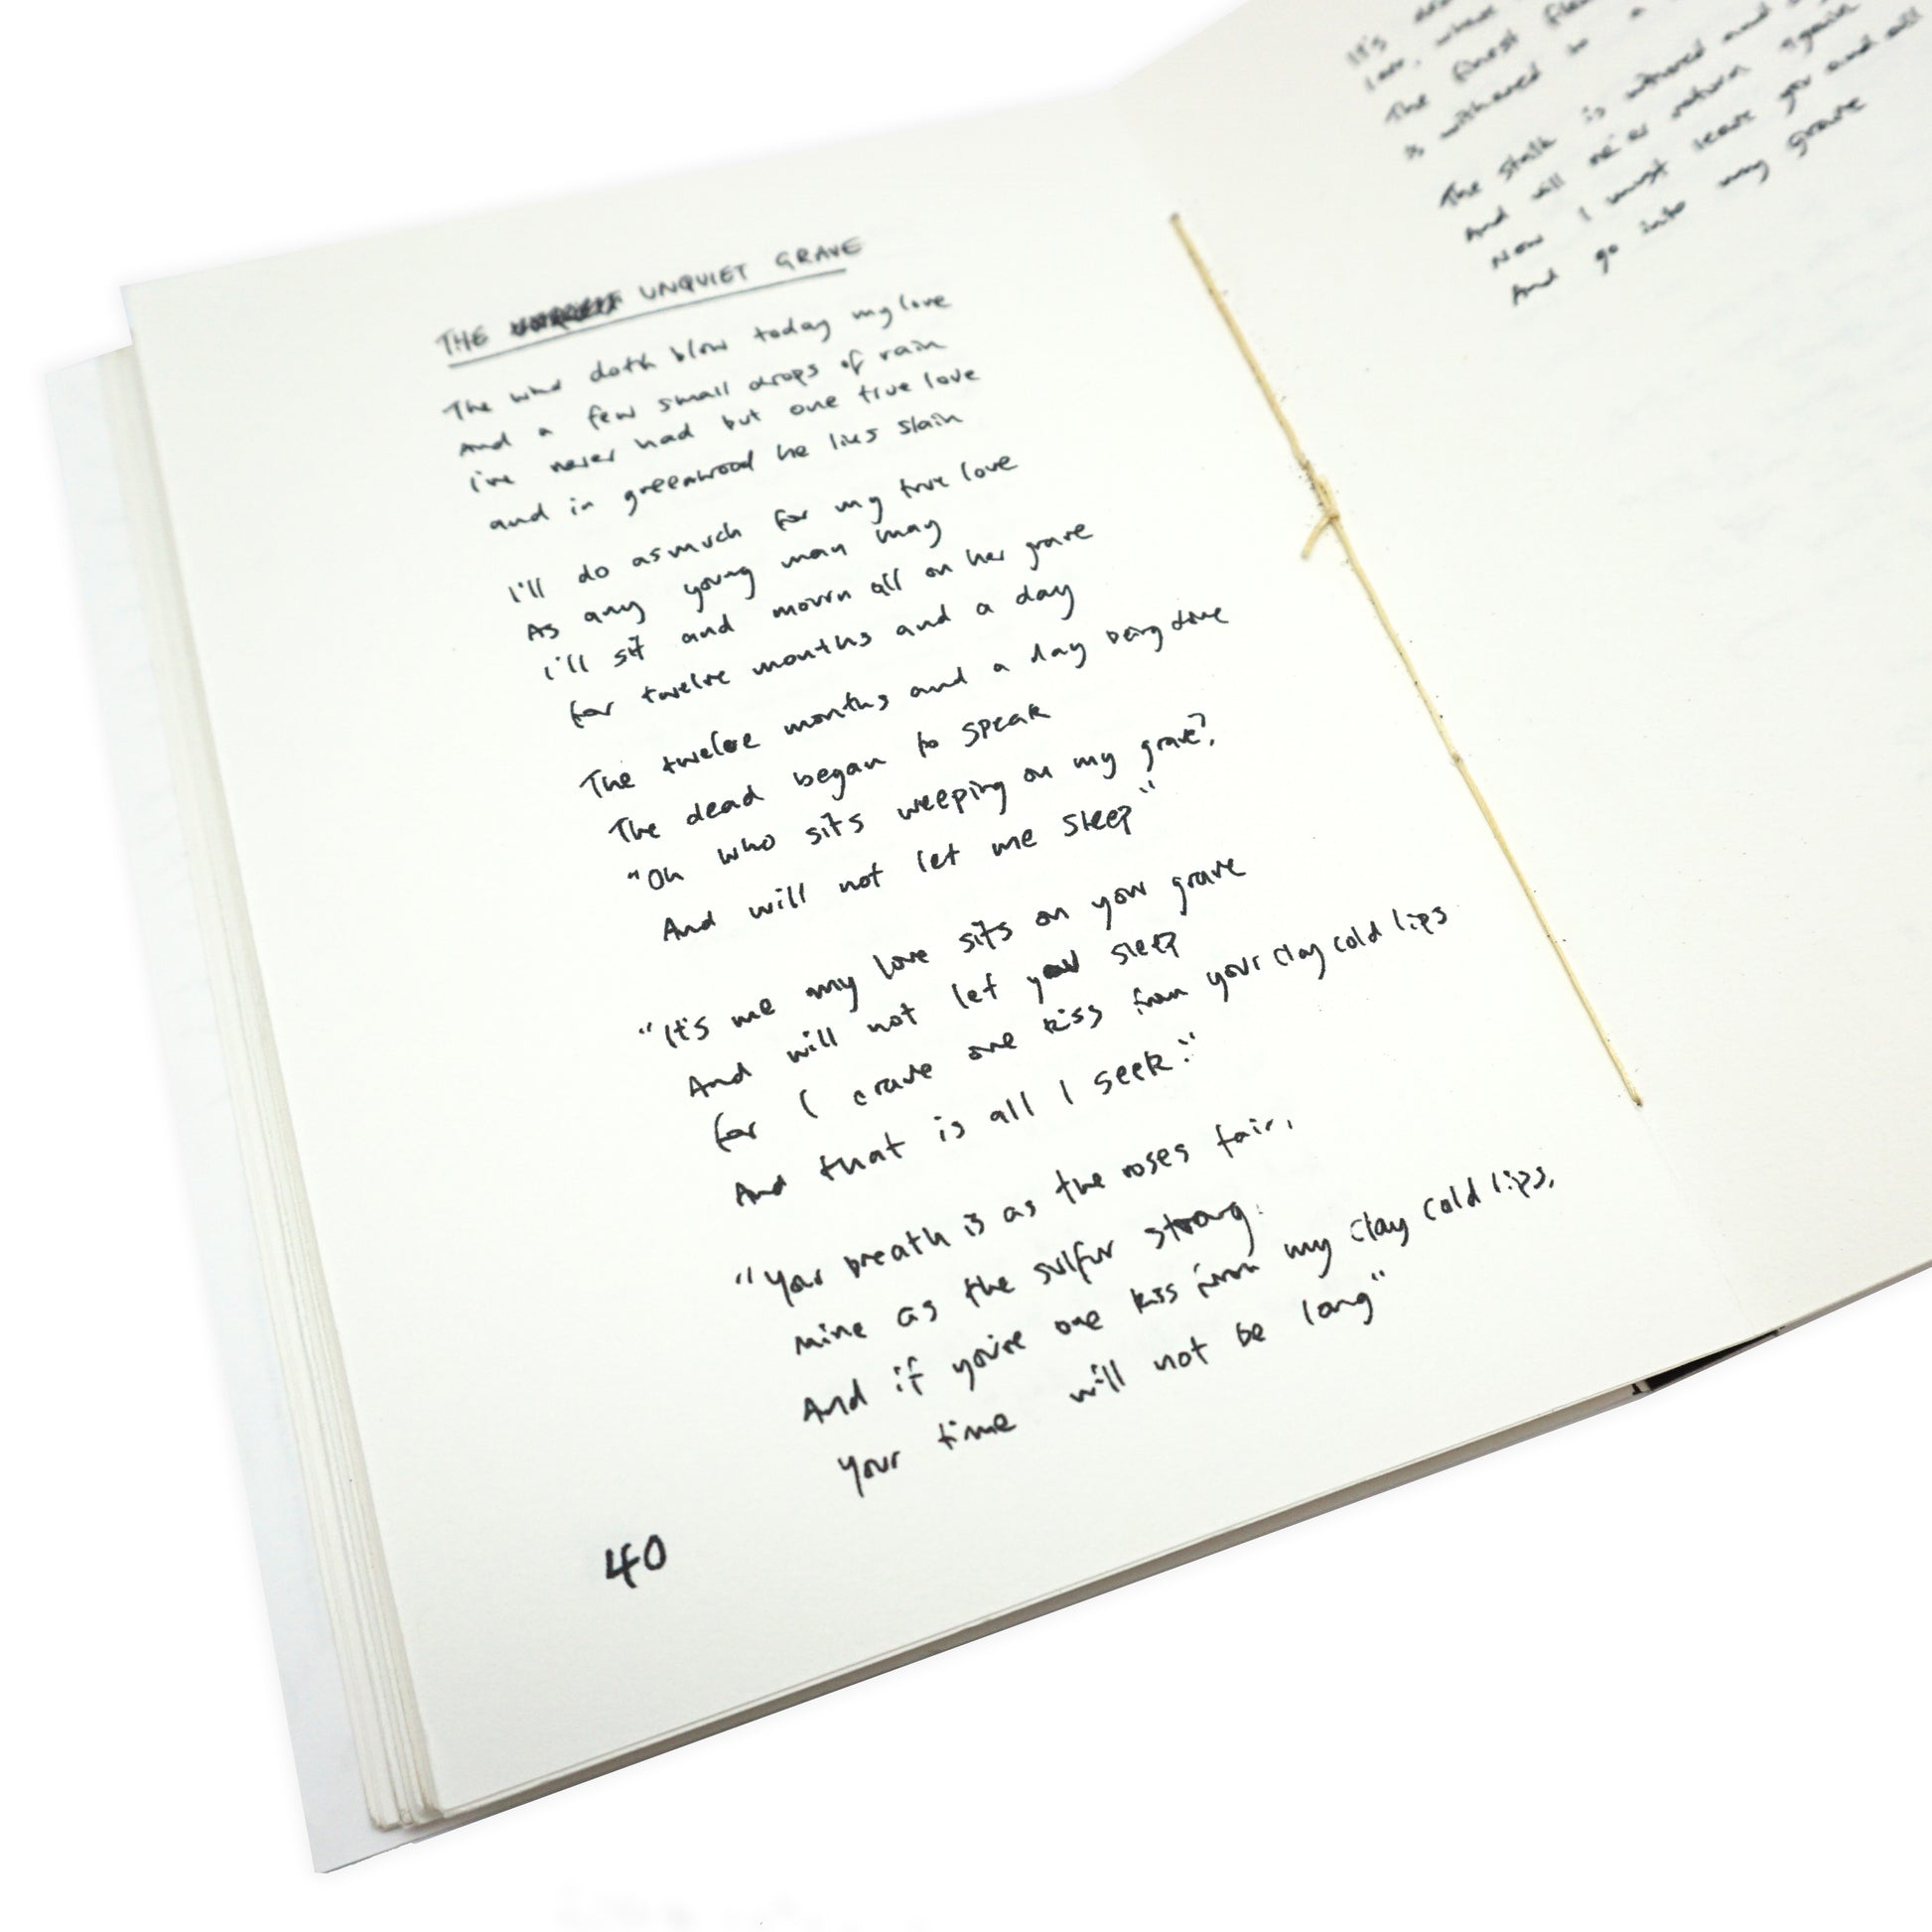 THE UNQUIET GRAVE
The wind doth blow today my love
And a few small drops of rain
i've never had but one true love
and in greenwood he lies slain
I'll do as much for my true love
As any young man may
I'll sit and mourn all on her grave
for twelve months and a day
The twelve months and a day being done
The dead began to speak
"Oh who sits weeping on my grave?
And will not let me sleep"
"It's me my love sits on your grave
And will not let you sleep
for I crave one kiss from your clay cold lips
And that is all I seek."
"Your breath is as the roses fair,
mine as the sulfur strong.
And if you're one kiss from my clay cold lips,
Your time will not be long"
40
It's
love, where
The finest
is withered to a
The stalk is withered and
And will ne'er return again
Now I must leave you and all
And go into my grave